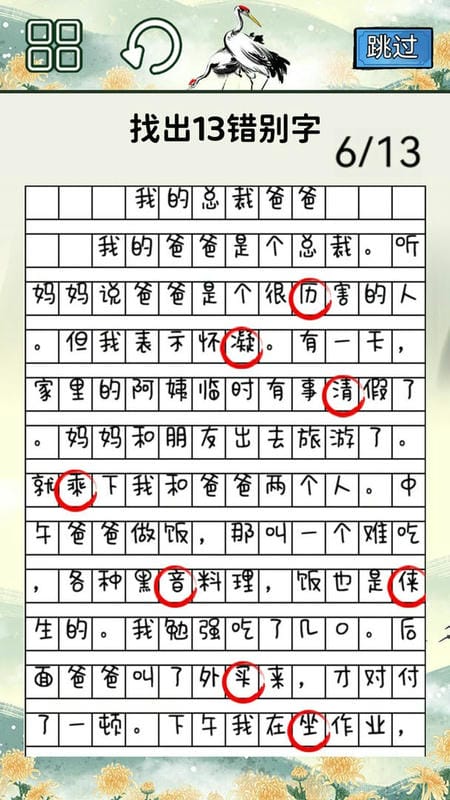 跳过
找出13错别字
6/13
我的总裁爸爸
我的爸爸是个总裁。听
妈妈说爸爸是个很厉害的人
。但我表示怀凝。有一天，
家里的阿姨临时有事清假了
。妈妈和朋友出去旅游了。
就乘下我和爸爸两个人。中
午爸爸做饭，那叫一个难吃
，各种黑音料理，饭也是侠
生的。我勉强吃了几口。后
面爸爸叫了外买来，才对付
了一顿。下午我在坐作业，